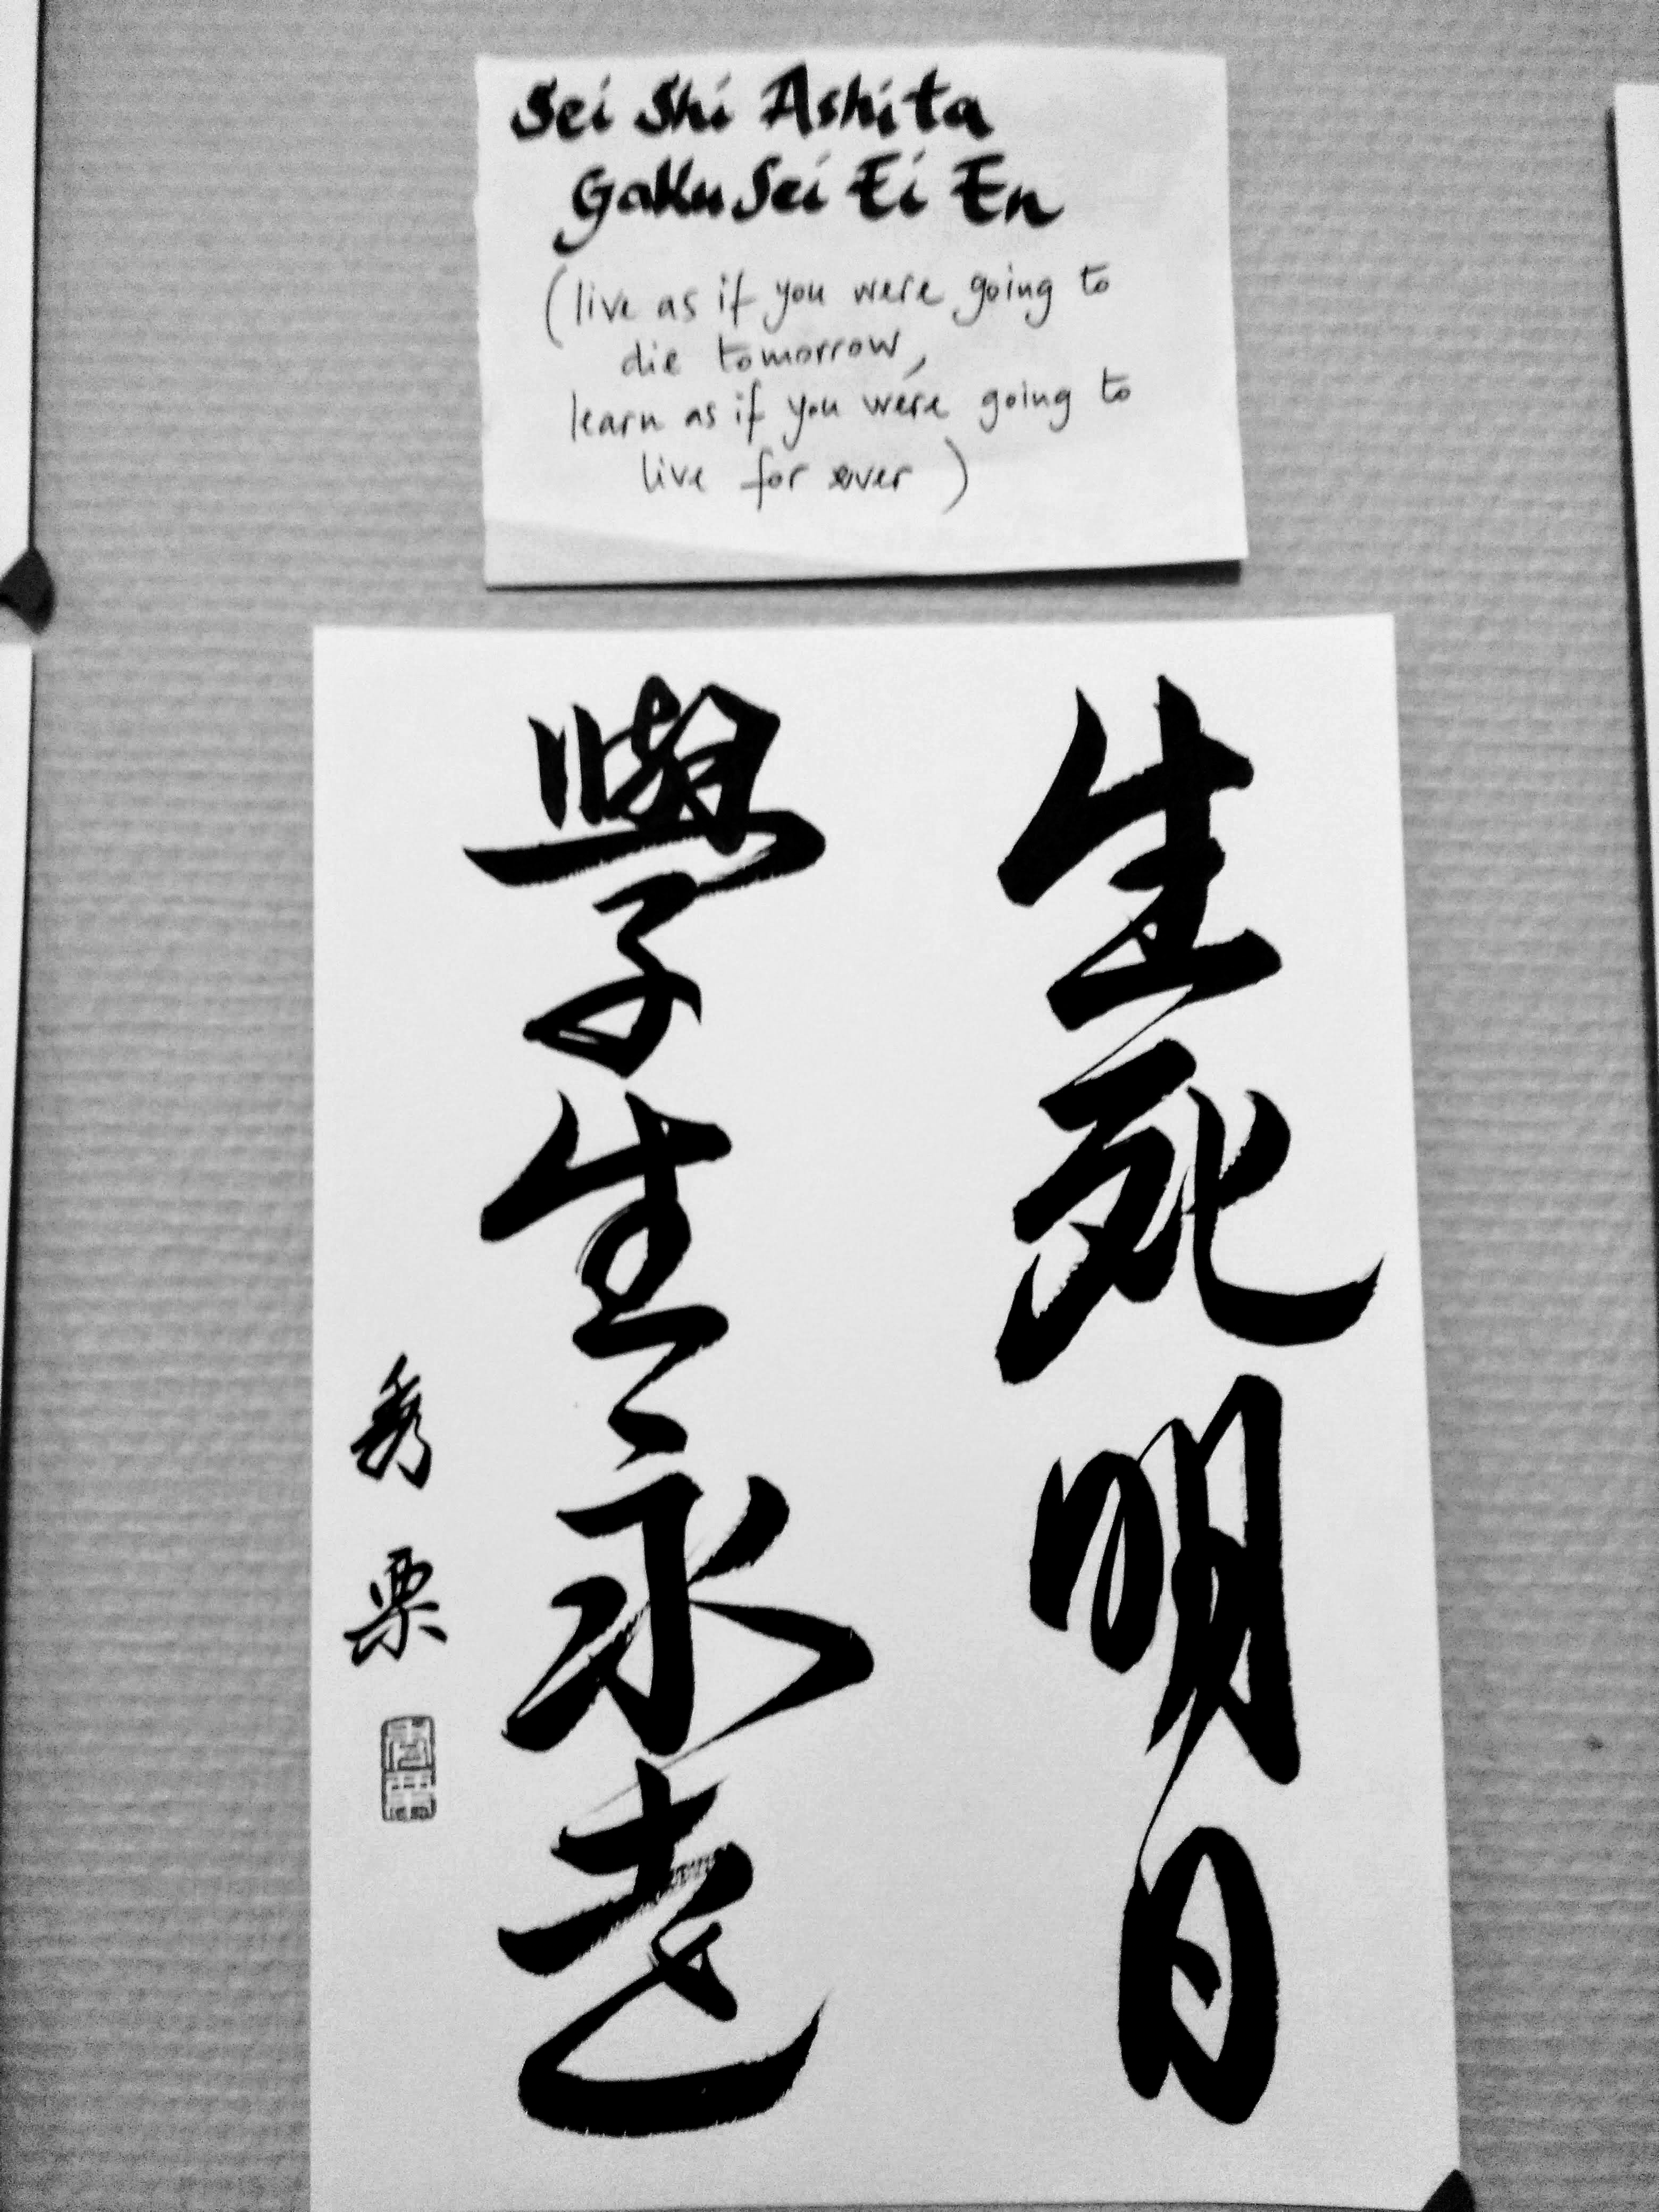 Sei Shi Ashita
Gaku Sei Ei En
(live as if you were going to
die tomorrow,
learn as if you were going to
live for ever)
生死明日
學生永遠
秀栗